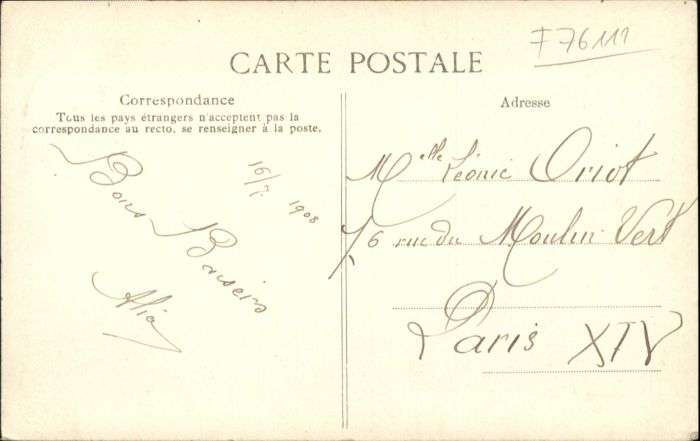 F76111
CARTE POSTALE
Correspondance
Tous les pays étrangers n'acceptent pas la
correspondance au recto, se renseigner à la poste.
16/7 1908
Bons Baisers
Adresse
Melle Léonie Oriot
76 rue du Moulin Vert
Paris XIV